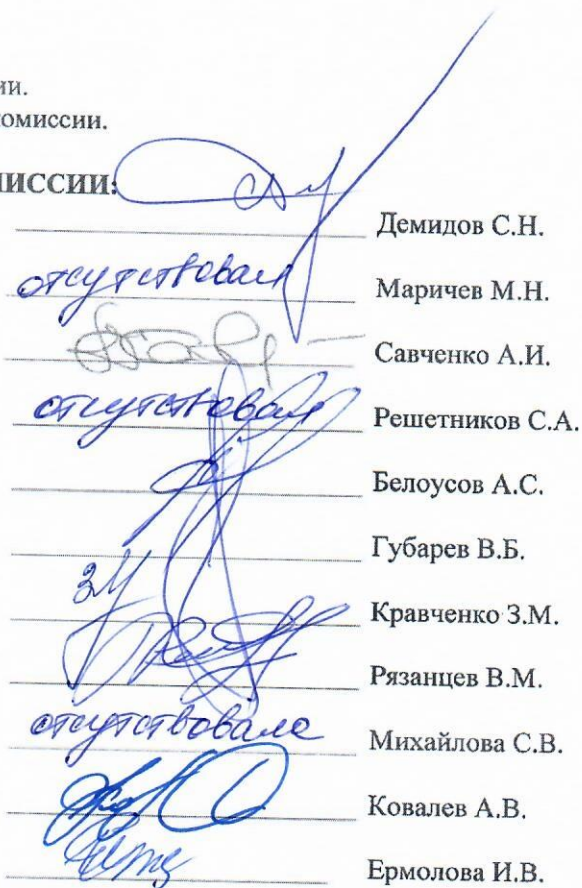 ии.
омиссии.
ИССИИ:
Демидов С.Н.
отсутствовал Маричев М.Н.
Савченко А.И.
отсутствовал Решетников С.А.
Белоусов А.С.
Губарев В.Б.
ЗМ Кравченко З.М.
Рязанцев В.М.
отсутствовала Михайлова С.В.
Ковалев А.В.
Ермолова И.В.